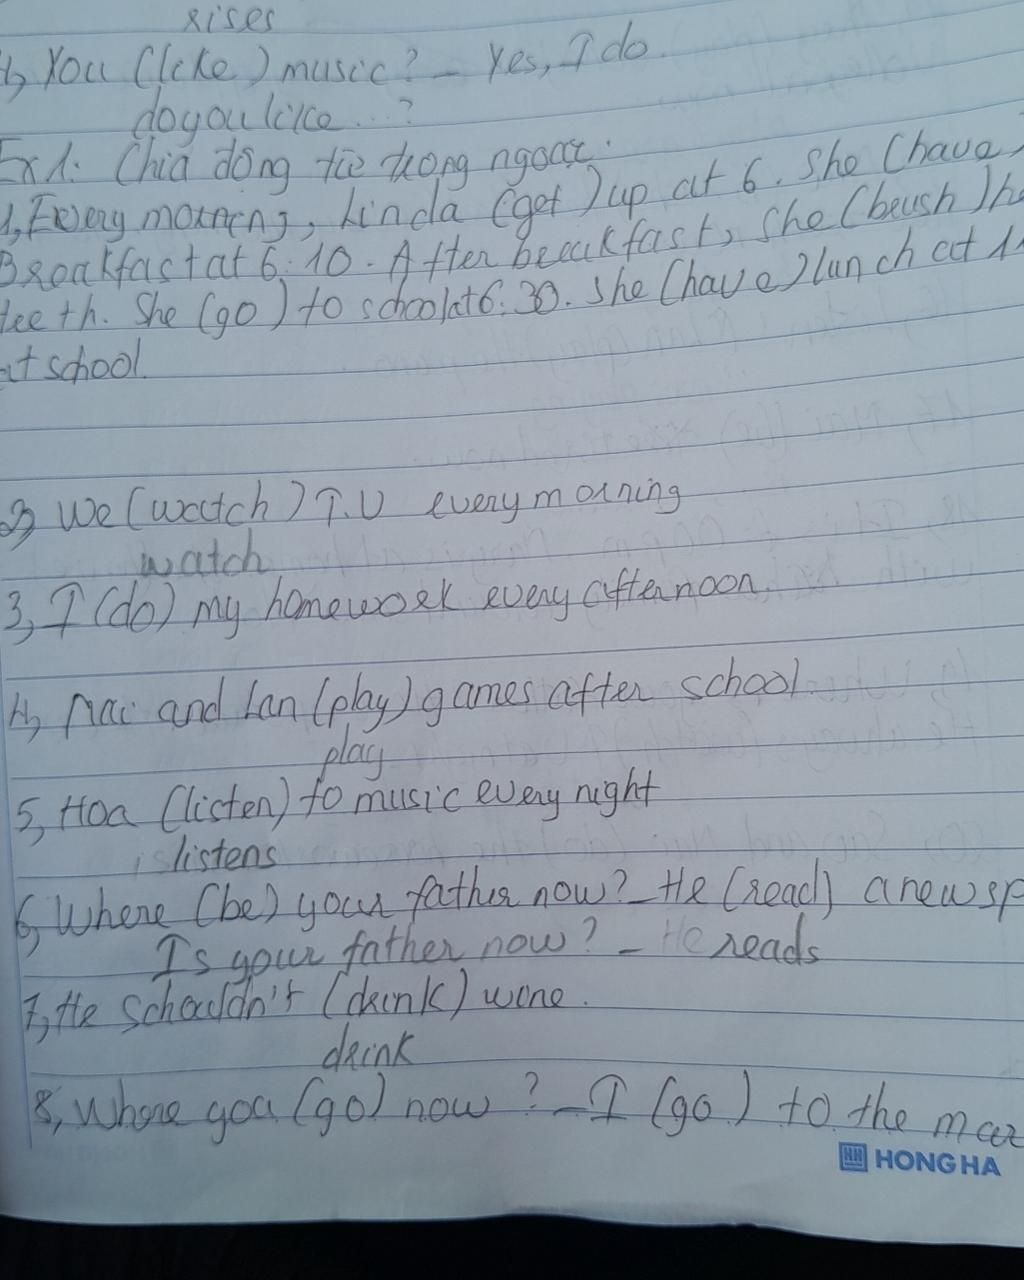 rises
4, You (like) music? - Yes, I do.
do you like...?
Ex1: Chia động từ trong ngoặc.
1, Every morning, Linda (get) up at 6. She (have)
Breakfast at 6:10. After breakfast, she (brush) he
teeth. She (go) to school at 6:30. She (have) lunch at 11
at school.
2, We (watch) T.V every morning
watch
3, I (do) my homework every afternoon.
4, Mai and Lan (play) games after school.
play
5, Hoa (listen) to music every night
listens
6, Where (be) your father now? - He (read) a newsp
Is your father now? - He reads
7, He schouldn't (drink) wine.
drink
8, Where you (go) now? - I (go) to the mar
HH HONG HA